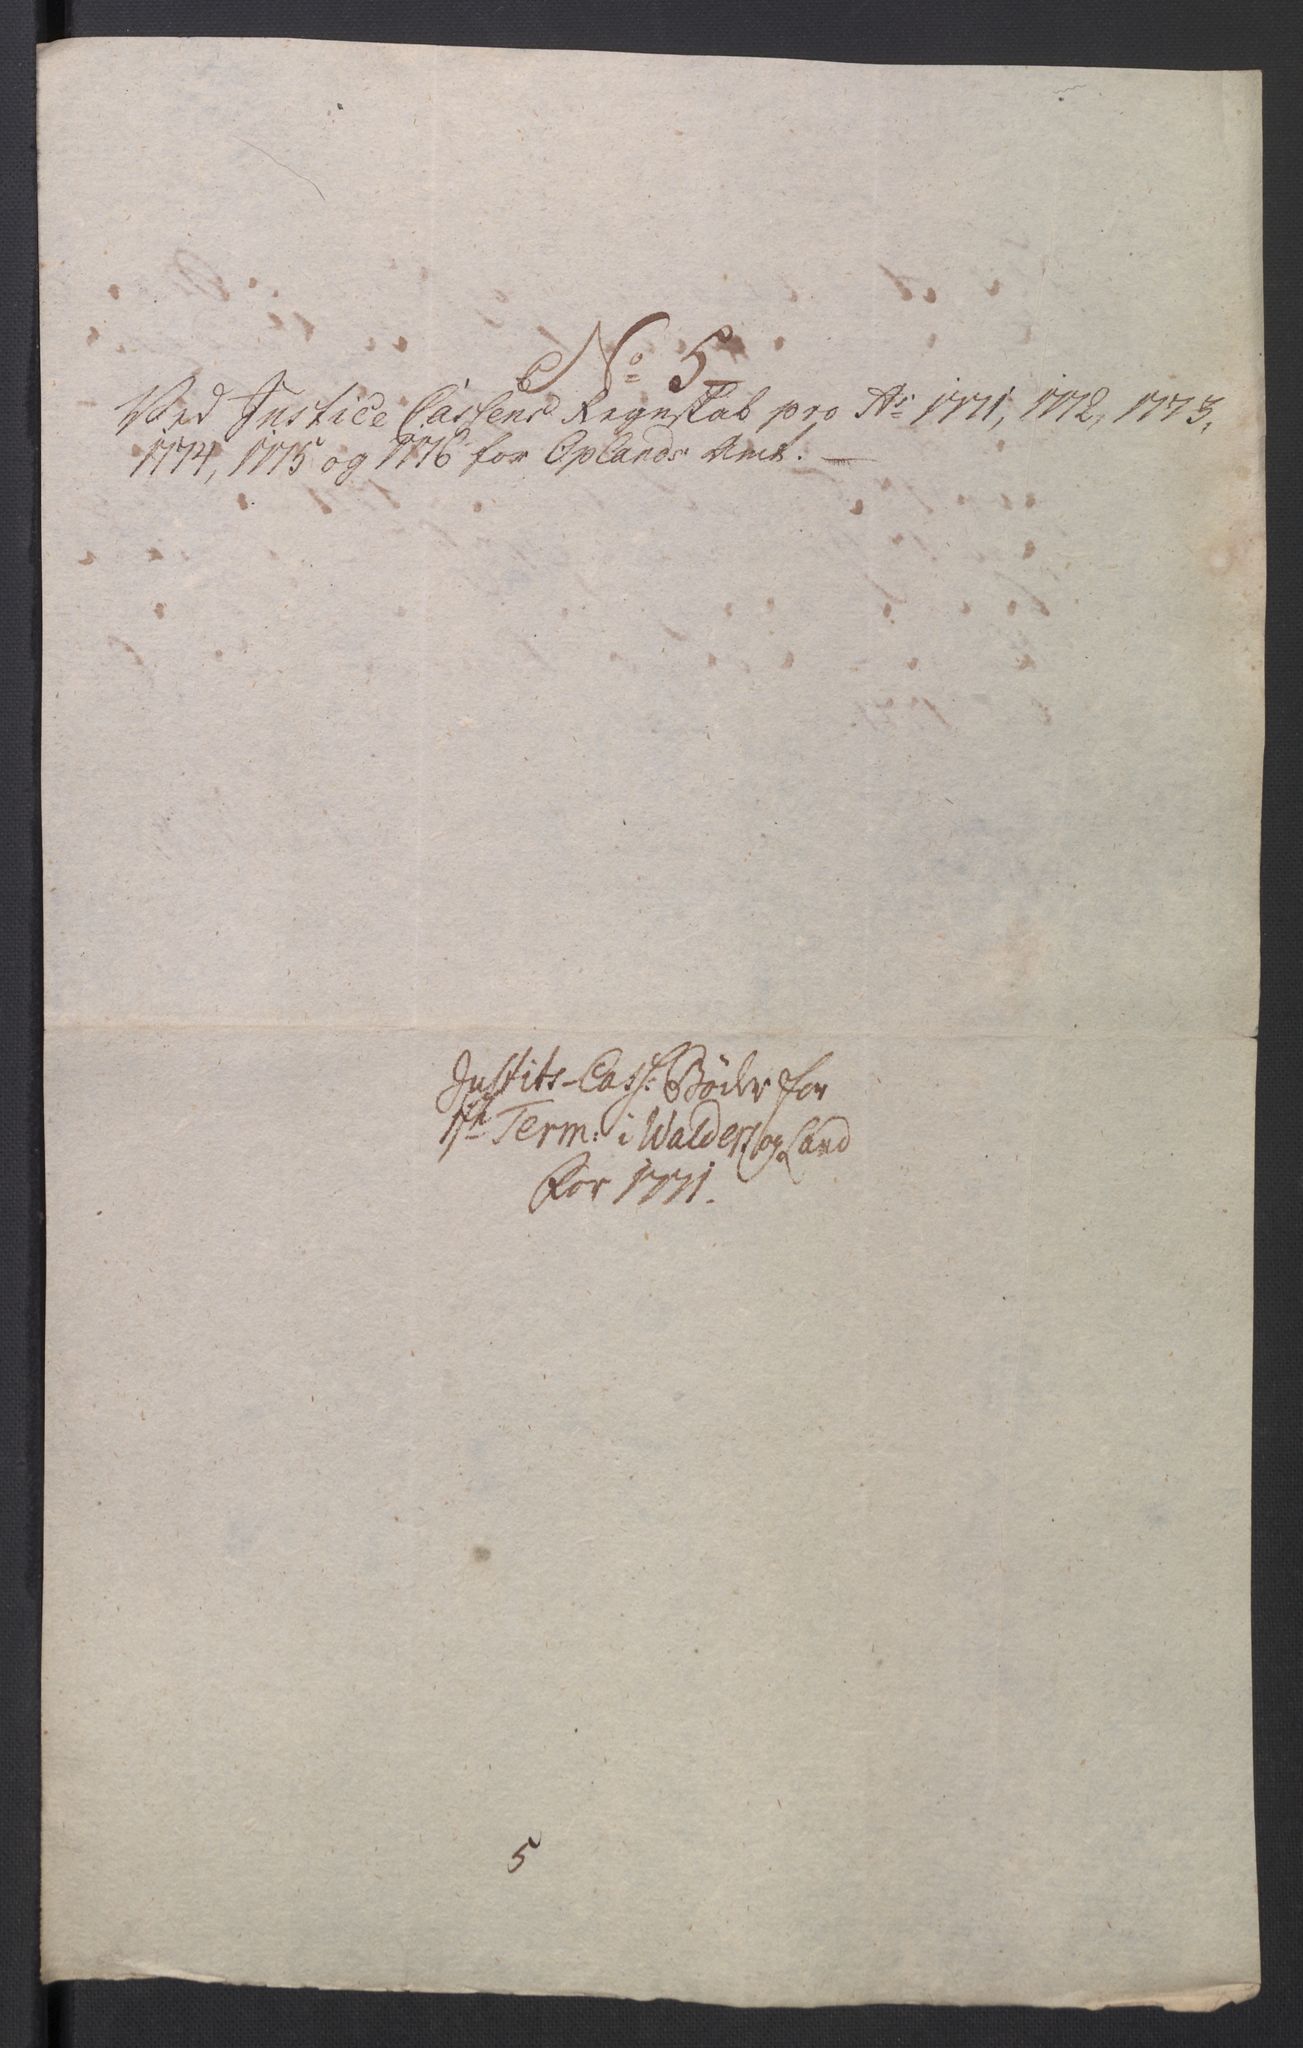 No 5
Ved Justice Cassens Regnskab pro Ao 1771, 1772, 1773,
1774, 1775 og 1776 for Oplands Amt.
Justits-Cass: Böder for
Term: i Walders og Land
for 1771.
5